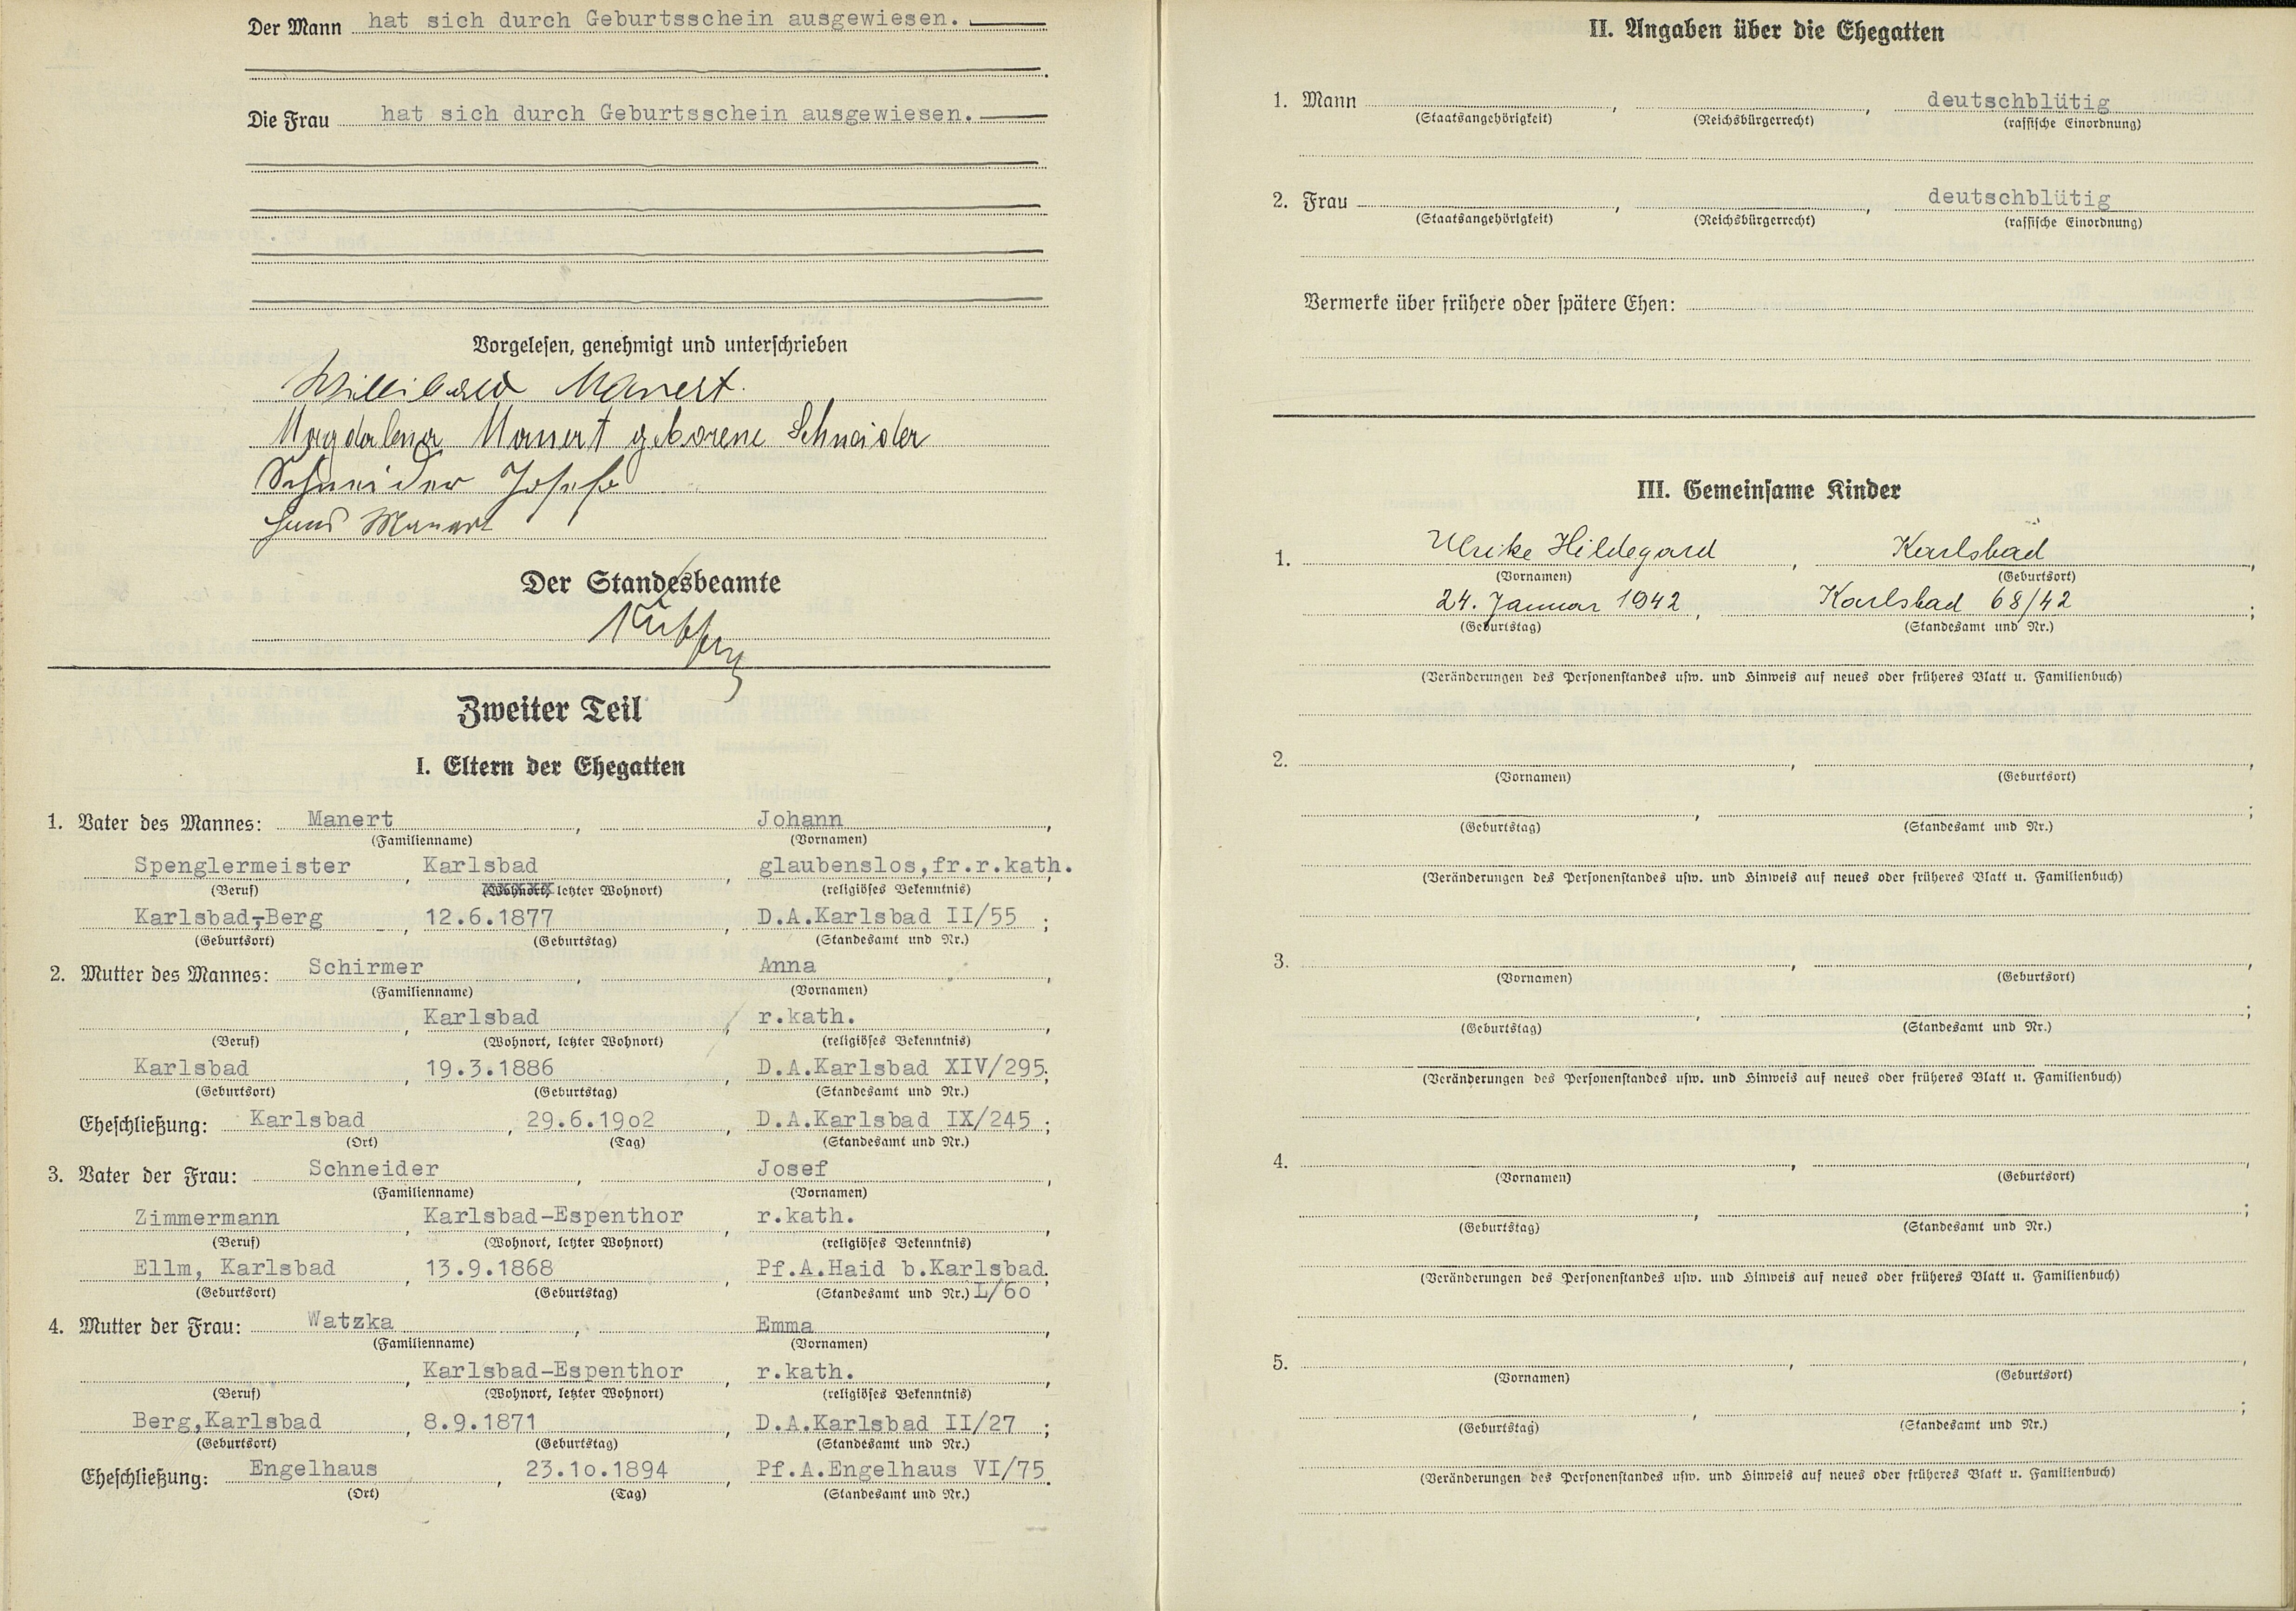 Der Mann hat sich durch Geburtsschein ausgewiesen.
Die Frau hat sich durch Geburtsschein ausgewiesen.
Vorgelesen, genehmigt und unterschrieben
Willibald Manert.
Magdalena Manert geborene Schneider
Schneider Josef
Hans Manert
Der Standesbeamte
Zweiter Teil
I. Eltern der Ehegatten
1. Vater des Mannes: Manert, Johann,
(Familienname) (Vornamen)
Spenglermeister, Karlsbad, glaubenslos,fr.r.kath.,
(Beruf) (Wohnort, letzter Wohnort) (religiöses Bekenntnis)
Karlsbad-Berg, 12.6.1877, D.A.Karlsbad II/55;
(Geburtsort) (Geburtstag) (Standesamt und Nr.)
2. Mutter des Mannes: Schirmer, Anna,
(Familienname) (Vornamen)
, Karlsbad, r.kath.,
(Beruf) (Wohnort, letzter Wohnort) (religiöses Bekenntnis)
Karlsbad, 19.3.1886, D.A.Karlsbad XIV/295;
(Geburtsort) (Geburtstag) (Standesamt und Nr.)
Eheschließung: Karlsbad, 29.6.19o2, D.A.Karlsbad IX/245;
(Ort) (Tag) (Standesamt und Nr.)
3. Vater der Frau: Schneider, Josef,
(Familienname) (Vornamen)
Zimmermann, Karlsbad-Espenthor, r.kath.,
(Beruf) (Wohnort, letzter Wohnort) (religiöses Bekenntnis)
Ellm, Karlsbad, 13.9.1868, Pf.A.Haid b.Karlsbad;
(Geburtsort) (Geburtstag) (Standesamt und Nr.) L/6o
4. Mutter der Frau: Watzka, Emma,
(Familienname) (Vornamen)
, Karlsbad-Espenthor, r.kath.,
(Beruf) (Wohnort, letzter Wohnort) (religiöses Bekenntnis)
Berg,Karlsbad, 8.9.1871, D.A.Karlsbad II/27;
(Geburtsort) (Geburtstag) (Standesamt und Nr.)
Eheschließung: Engelhaus, 23.1o.1894, Pf.A.Engelhaus VI/75.
(Ort) (Tag) (Standesamt und Nr.)
II. Angaben über die Ehegatten
1. Mann , , deutschblütig
(Staatsangehörigkeit) (Reichsbürgerrecht) (rassische Einordnung)
2. Frau , , deutschblütig
(Staatsangehörigkeit) (Reichsbürgerrecht) (rassische Einordnung)
Vermerke über frühere oder spätere Ehen:
III. Gemeinsame Kinder
1. Ulrike Hildegard, Karlsbad,
(Vornamen) (Geburtsort)
24. Januar 1942, Karlsbad 68/42;
(Geburtstag) (Standesamt und Nr.)
(Veränderungen des Personenstandes usw. und Hinweis auf neues oder früheres Blatt u. Familienbuch)
2. , ,
(Vornamen) (Geburtsort)
, ;
(Geburtstag) (Standesamt und Nr.)
(Veränderungen des Personenstandes usw. und Hinweis auf neues oder früheres Blatt u. Familienbuch)
3. , ,
(Vornamen) (Geburtsort)
, ;
(Geburtstag) (Standesamt und Nr.)
(Veränderungen des Personenstandes usw. und Hinweis auf neues oder früheres Blatt u. Familienbuch)
4. , ,
(Vornamen) (Geburtsort)
, ;
(Geburtstag) (Standesamt und Nr.)
(Veränderungen des Personenstandes usw. und Hinweis auf neues oder früheres Blatt u. Familienbuch)
5. , ,
(Vornamen) (Geburtsort)
, ;
(Geburtstag) (Standesamt und Nr.)
(Veränderungen des Personenstandes usw. und Hinweis auf neues oder früheres Blatt u. Familienbuch)